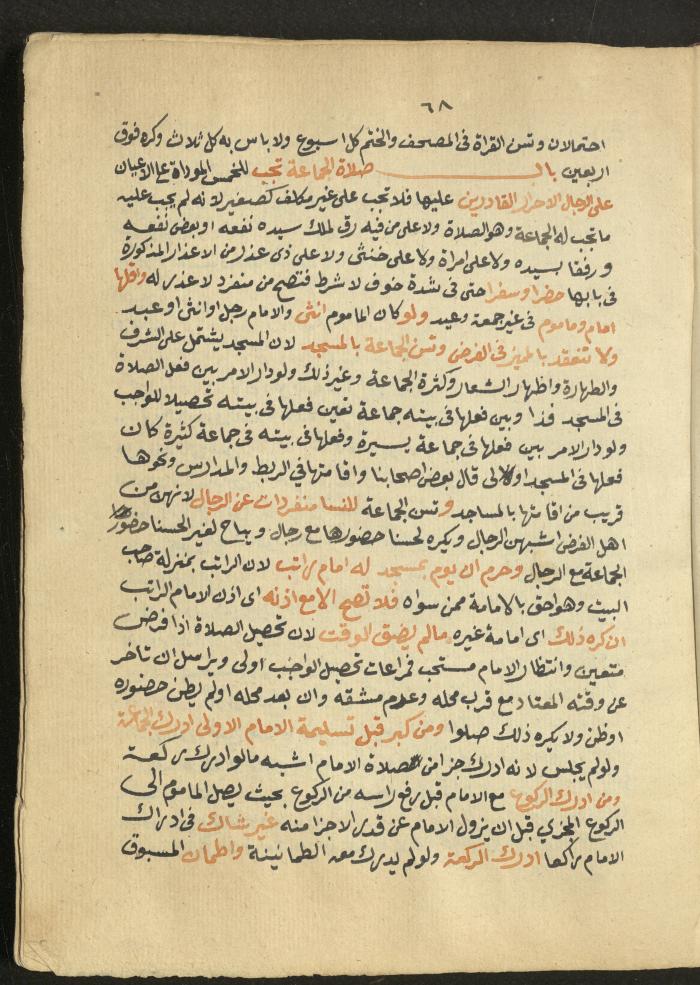 ٦٨
احتمالان وتسن القراة فى المصحف والختم كل اسبوع ولا باس به كل ثلاث وكره فوق
اربعين باب صلاة الجماعة تجب للخمس الموداة على الاعيان
على الرجال الاحرار القادرين عليها فلا تجب على غير مكلف كصغير لانه لم يجب عليه
ما تجب له الجماعة وهو الصلاة ولا على من فيه رق لملك سيده نفعه او بعض نفعه
ورفقا بسيده ولا على امراة ولا على خنثى ولا على ذى عذر من الاعذار المذكورة
فى بابها حضرا وسفرا حتى فى شدة خوف لا شرط فتصح من منفرد لا عذر له واقلها
امام وماموم فى غير جمعة وعيد ولو كان الماموم انثى والامام رجل او انثى او عبد
ولا تنعقد بالمميز فى الفرض وتسن الجماعة بالمسجد لان المسجد يشتمل على الشرف
والطهارة واظهار الشعار وكثرة الجماعة وغير ذلك ولو دار الامر بين فعل الصلاة
فى المسجد فذا وبين فعلها فى بيته جماعة تعين فعلها فى بيته تحصيلا للواجب
ولو دار الامر بين فعلها فى جماعة يسيرة وفعلها فى بيته فى جماعة كثيرة كان
فعلها فى المسجد اولى قال بعض اصحابنا واقامتها فى الربط والمدارس ونحوها
قريب من اقامتها بالمساجد وتسن الجماعة للنسا منفردات عن الرجال لانهن من
اهل الفرض اشبهن الرجال ويكره لحسنا حضورها مع رجال ويباح لغير الحسنا حضور
الجماعة مع الرجال وحرم ان يوم بمسجد له امام راتب لان الراتب بمنزلة صاحب
البيت وهو احق بالامامة ممن سواه فلا تصح الا مع اذنه اى اذن الامام الراتب
ان كره ذلك اى امامة غيره ما لم يضق الوقت لان تحصيل الصلاة اذا فرض
متعين وانتظار الامام مستحب فمراعات تحصيل الواجب اولى ويراسل ان تاخر
عن وقته المعتاد مع قرب محله وعدم مشقه وان بعد محله او لم يظن حضوره
او ظن ولا يكره ذلك صلوا ومن كبر قبل تسليمة الامام الاولى ادرك الجماعة
ولو لم يجلس لانه ادرك جزا من صلاة الامام اشبه ما لو ادرك ركعة
ومن ادرك الركوع مع الامام قبل رفع راسه من الركوع بحيث يصل الماموم الى
الركوع المجزى قبل ان يزول الامام عن قدر الاجزا منه غير شاك فى ادراك
الامام راكعا ادرك الركعة ولو لم يدرك معه الطمانينة واطمان المسبوق